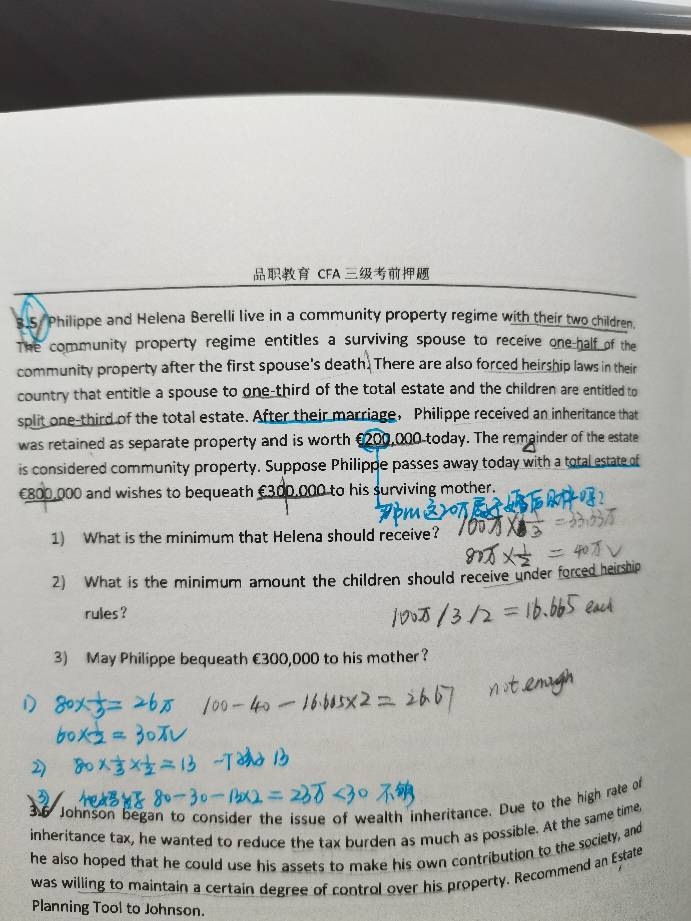 品职教育 CFA 三级考前押题
3.5 Philippe and Helena Berelli live in a community property regime with their two children.
The community property regime entitles a surviving spouse to receive one-half of the
community property after the first spouse's death. There are also forced heirship laws in their
country that entitle a spouse to one-third of the total estate and the children are entitled to
split one-third of the total estate. After their marriage, Philippe received an inheritance that
was retained as separate property and is worth €200,000 today. The remainder of the estate
is considered community property. Suppose Philippe passes away today with a total estate of
€800,000 and wishes to bequeath €300,000 to his surviving mother.
这20万属于婚后财产吗?
1) What is the minimum that Helena should receive? 100万×1/3 = 33.33万
80万×1/2 = 40万√
2) What is the minimum amount the children should receive under forced heirship
rules? 100万/3/2 = 16.665 each
3) May Philippe bequeath €300,000 to his mother?
1) 80×1/3 = 26万 100-40-16.665×2 = 26.67 not enough
60×1/2 = 30万√
2) 80×1/3×1/2 = 13 13
3) 80-30-13×2 = 23万<30 不够
3.6 Johnson began to consider the issue of wealth inheritance. Due to the high rate of
inheritance tax, he wanted to reduce the tax burden as much as possible. At the same time,
he also hoped that he could use his assets to make his own contribution to the society, and
was willing to maintain a certain degree of control over his property. Recommend an Estate
Planning Tool to Johnson.